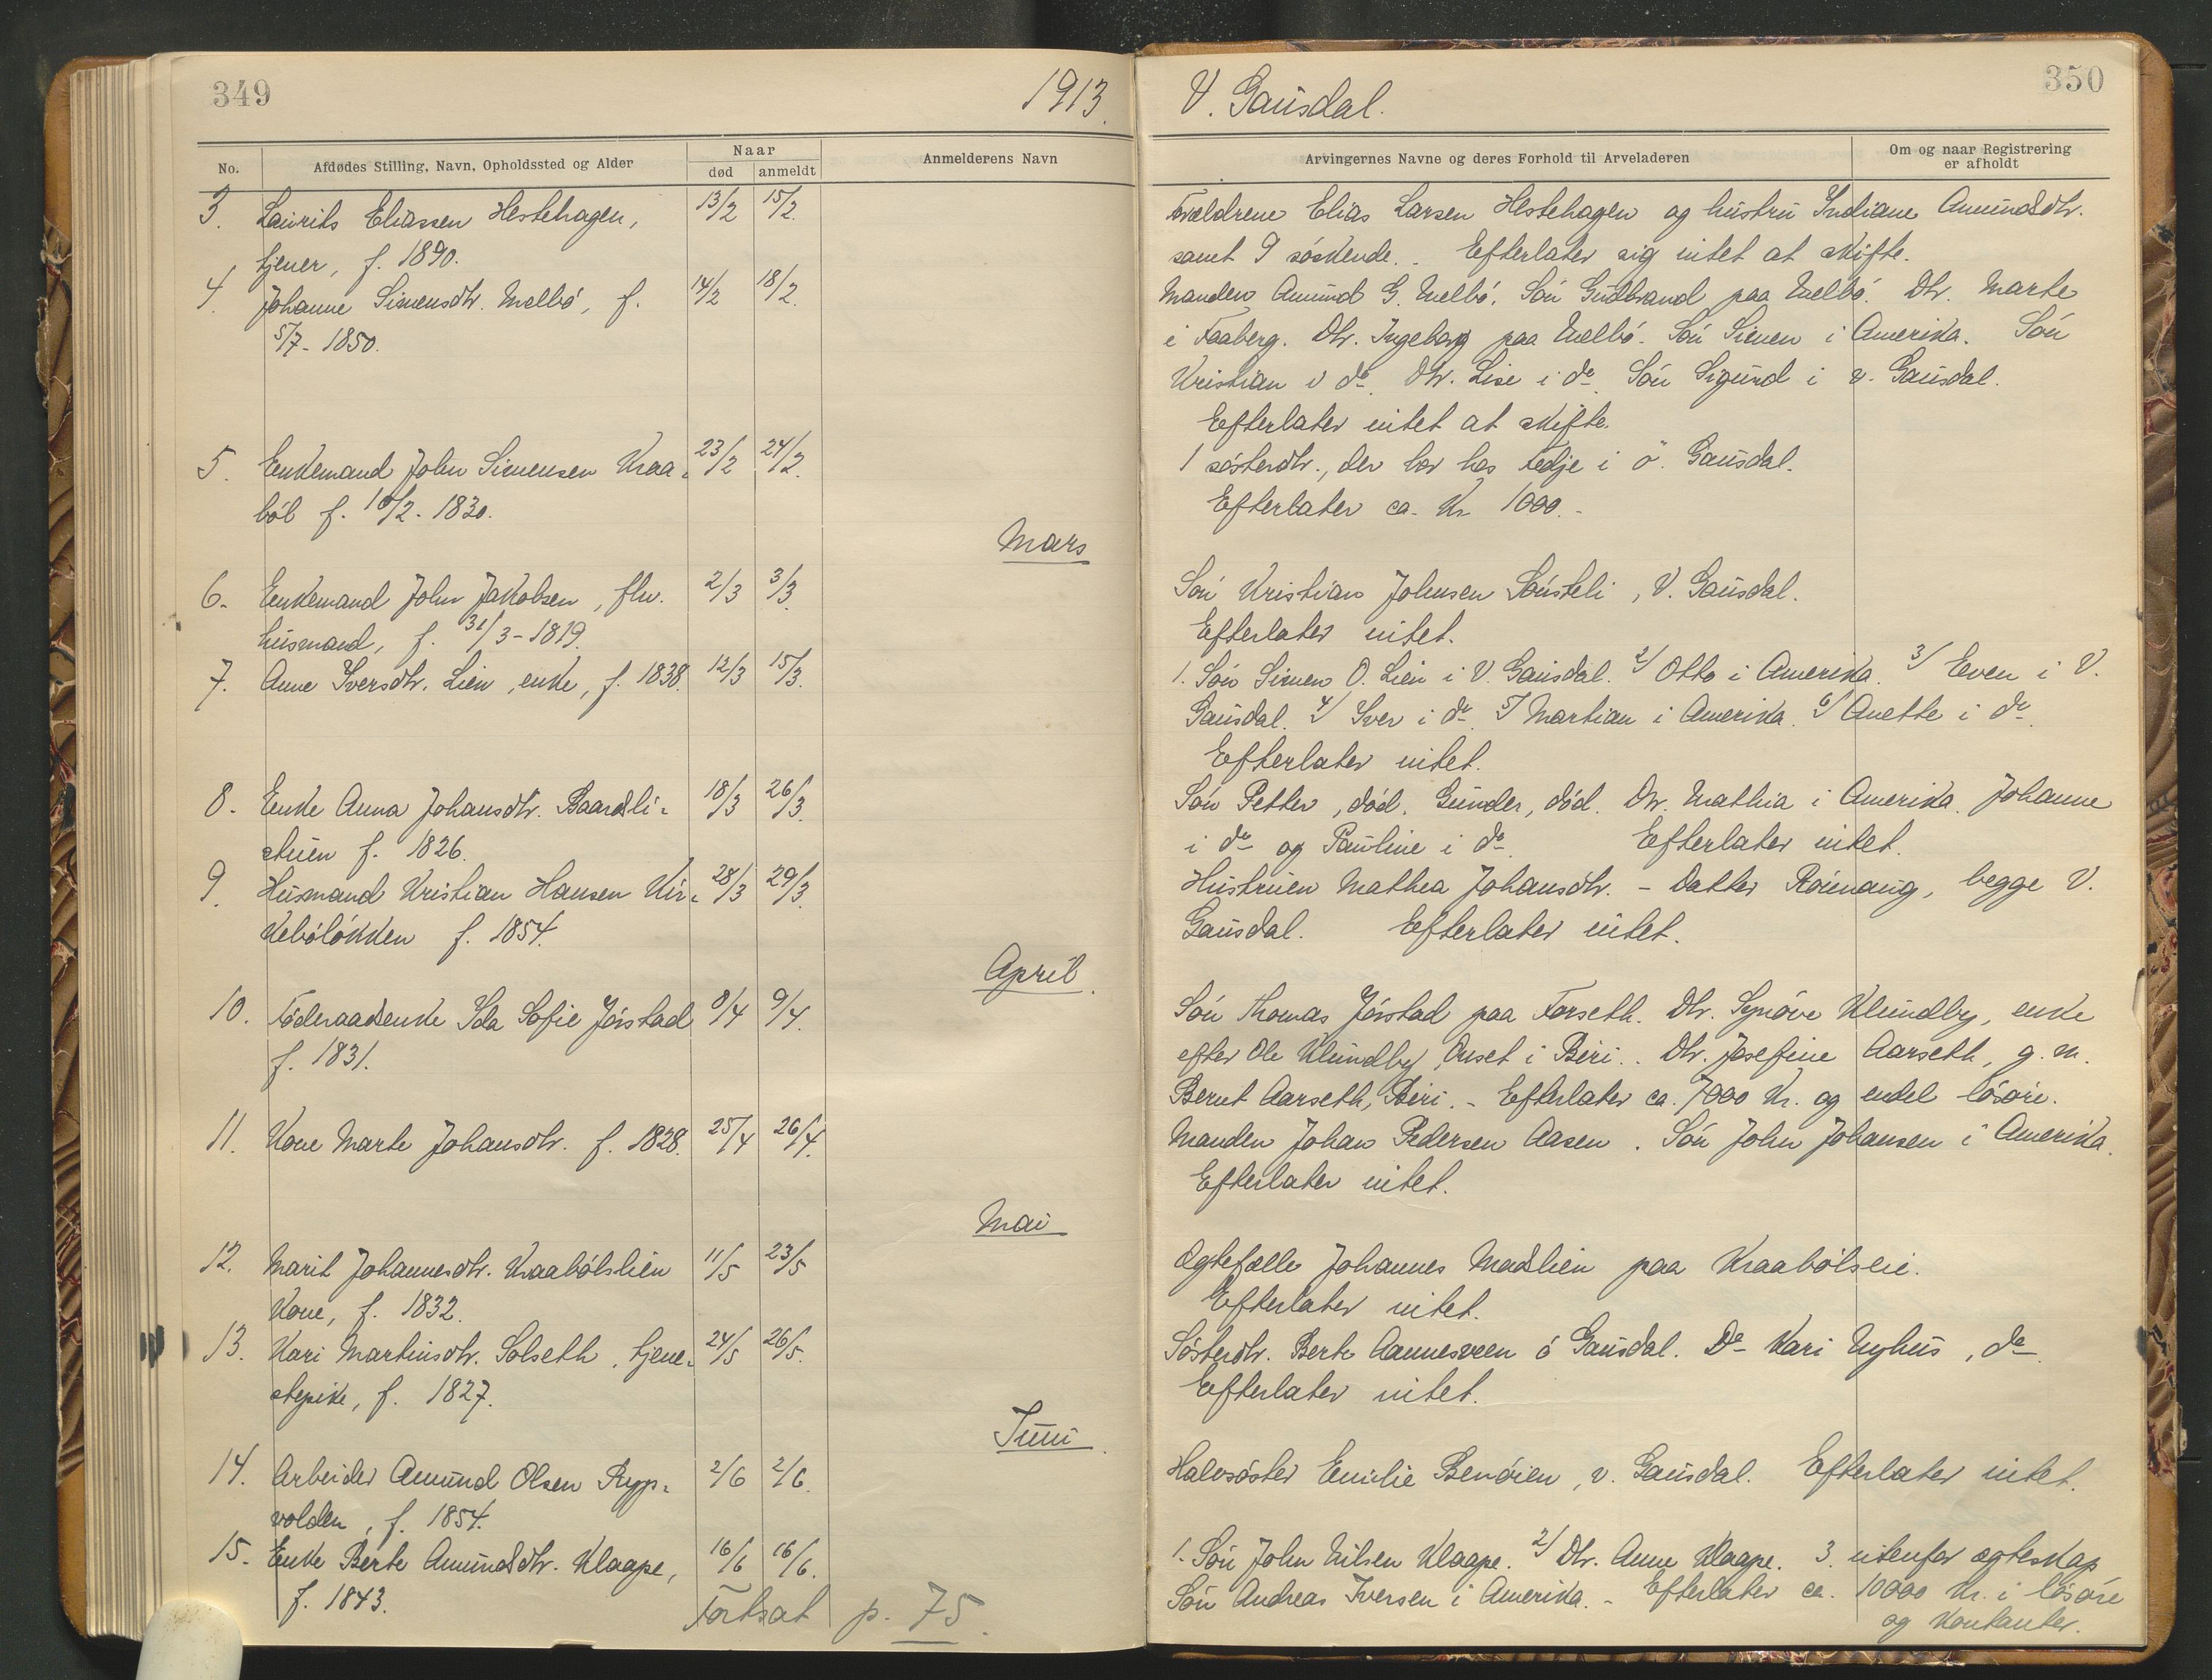 349
1913.
No.
Afdødes Stilling, Navn, Opholdssted og Alder
Naar
død
anmeldt
Anmelderens Navn
3. Laurits Eliassen Hestehagen, 13/2 15/2.
tjener, f. 1890.
4. Johanne Simensdtr. Melbö, f. 14/2 18/2.
5/7-1850.
5. Enkemand John Simensen Kraa- 23/2 24/2.
böl f. 10/2-1830.
Mars
6. Enkemand John Jakobsen, fhv. 2/3 3/3.
husmand, f. 31/3-1819.
7. Anne Iversdtr. Lien, enke, f. 1838. 12/3 15/3.
8. Enke Anna Johansdtr. Baardsli- 18/3 26/3.
stuen f. 1826.
9. Husmand Kristian Hansen Kir- 28/3 29/3.
kebölökken f. 1854.
April.
10. Föderaadsenke Ida Sofie Jörstad 8/4 9/4.
f. 1831.
11. Kone Marte Johansdtr. f. 1828. 25/4 26/4.
Mai
12. Marit Johannesdtr. Kraabölslien 11/5 23/5
Kone, f. 1832.
13. Kari Martinsdtr. Solseth, tjene- 24/5 26/5.
stepike, f. 1827.
Juni.
14. Arbeider Amund Olsen Ryp- 2/6 2/6.
volden, f. 1854.
15. Enke Berte Amundsdtr. Klaape, 16/6 16/6.
f. 1843.
Fortsat p. 75.
V. Gausdal.
350
Arvingernes Navne og deres Forhold til Arveladeren
Om og naar Registrering
er afholdt
Forældrene Elias Larsen Hestehagen og hustru Indiane Amundsdtr.
samt 9 söskende. Efterlater sig intet at skifte.
Manden Amund G. Melbö. Sön Gudbrand paa Melbö. Dtr. Marte
i Faaberg. Dtr. Ingeborg paa Melbö. Sön Simen i Amerika. Sön
Kristian i do. Dtr. Lise i do. Sön Sigurd i v. Gausdal.
Efterlater intet at skifte.
1 sösterdtr., der bor hos Fedje i ö. Gausdal.
Efterlater ca. Kr. 1000.-
Sön Kristian Johnsen Sönsteli, V. Gausdal.
Efterlater intet.
1. Sön Simen O. Lien i V. Gausdal. 2/ Otto i Amerika. 3/ Even i V.
Gausdal. 4/ Iver i do. 5/ Martian i Amerika. 6/ Anette i do.
Efterlater intet.
Sön Petter, död. Gunder, död. Dtr. Mathia i Amerika. Johanne
i do og Pauline i do. Efterlater intet.
Hustruen Mathea Johansdtr. - Datter Rönnaug, begge V.
Gausdal. Efterlater intet.
Sön Thomas Jörstad paa Forseth. Dtr. Synöve Klundby, enke
efter Ole Klundby, Onset i Biri. Dtr. Josefine Aarseth, g. m.
Bernt Aarseth, Biri. - Efterlater ca. 7000 Kr. og endel lösöre.
Manden Johan Pedersen Aasen. Sön John Johansen i Amerika.
Efterlater intet.
Ægtefælle Johannes Madslien paa Kraabölseie.
Efterlater intet.
Sösterdtr. Berte Aannesveen ö Gausdal. Do Kari Nyhus, do.
Efterlater intet.
Halvsöster Emilie Benöien, v. Gausdal. Efterlater intet.
1. Sön John Nilsen Klaape. 2/ Dtr. Anne Klaape. 3. utenfor ægteskap
Sön Andreas Iversen i Amerika. - Efterlater ca. 10000 Kr. i lösöre
og Kontanter.